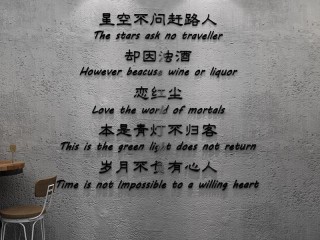 星空不问赶路人
The stars ask no traveller
却因浊酒
However beacuse wine or liquor
恋红尘
Love the world of mortals
本是青灯不归客
This is the green light does not return
岁月不负有心人
Time is not Impossible to a willing heart